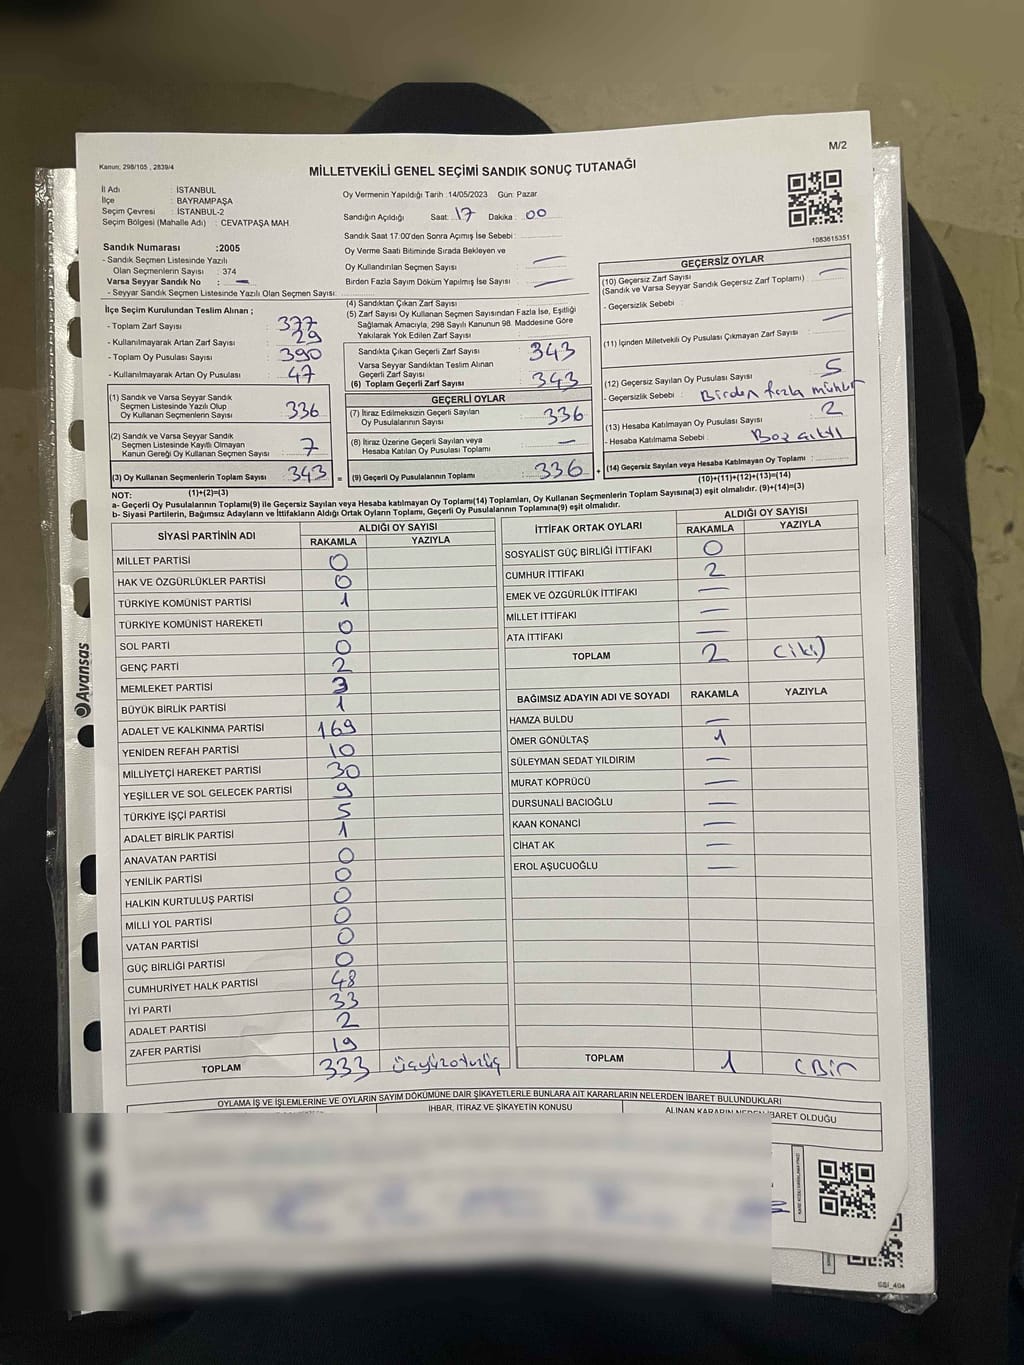 M/2
Kanun: 298/105 , 2839/4
MİLLETVEKİLİ GENEL SEÇİMİ SANDIK SONUÇ TUTANAĞI
İl Adı : İSTANBUL
İlçe : BAYRAMPAŞA
Seçim Çevresi : İSTANBUL-2
Seçim Bölgesi (Mahalle Adı) : CEVATPAŞA MAH.
Sandık Numarası :2005
- Sandık Seçmen Listesinde Yazılı
Olan Seçmenlerin Sayısı : 374
Varsa Seyyar Sandık No : —
- Seyyar Sandık Seçmen Listesinde Yazılı Olan Seçmen Sayısı:
Oy Vermenin Yapıldığı Tarih :14/05/2023 Gün: Pazar
Sandığın Açıldığı Saat: 17 Dakika : 00
Sandık Saat 17:00'den Sonra Açımış İse Sebebi :
Oy Verme Saati Bitiminde Sırada Bekleyen ve
Oy Kullandırılan Seçmen Sayısı : —
Birden Fazla Sayım Döküm Yapılmış İse Sayısı : —
1083615351
İlçe Seçim Kurulundan Teslim Alınan ;
- Toplam Zarf Sayısı : 377
- Kullanılmayarak Artan Zarf Sayısı : 29
- Toplam Oy Pusulası Sayısı : 390
- Kullanılmayarak Artan Oy Pusulası : 47
(1) Sandık ve Varsa Seyyar Sandık
Seçmen Listesinde Yazılı Olup
Oy Kullanan Seçmenlerin Sayısı : 336
(2) Sandık ve Varsa Seyyar Sandık
Seçmen Listesinde Kayıtlı Olmayan
Kanun Gereği Oy Kullanan Seçmen Sayısı : 7
(3) Oy Kullanan Seçmenlerin Toplam Sayısı : 343 =
(1)+(2)=(3)
(4) Sandıktan Çıkan Zarf Sayısı :
(5) Zarf Sayısı Oy Kullanan Seçmen Sayısından Fazla İse, Eşitliği
Sağlamak Amacıyla, 298 Sayılı Kanunun 98. Maddesine Göre
Yakılarak Yok Edilen Zarf Sayısı :
Sandıkta Çıkan Geçerli Zarf Sayısı : 343
Varsa Seyyar Sandıktan Teslim Alınan
Geçerli Zarf Sayısı :
(6) Toplam Geçerli Zarf Sayısı : 343
GEÇERLİ OYLAR
(7) İtiraz Edilmeksizin Geçerli Sayılan
Oy Pusulası Sayısı : 336
(8) İtiraz Üzerine Geçerli Sayılan veya
Hesaba Katılan Oy Pusulası Toplamı : —
(9) Geçerli Oy Pusulalarının Toplamı : 336 +
GEÇERSİZ OYLAR
(10) Geçersiz Zarf Sayısı : —
(Sandık ve Varsa Seyyar Sandık Geçersiz Zarf Toplamı)
- Geçersizlik Sebebi :
(11) İçinden Milletvekili Oy Pusulası Çıkmayan Zarf Sayısı : —
(12) Geçersiz Sayılan Oy Pusulası Sayısı : 5
- Geçersizlik Sebebi : Birden fazla mühür
(13) Hesaba Katılmayan Oy Pusulası Sayısı : 2
- Hesaba Katılmama Sebebi : Boş çıktı
(14) Geçersiz Sayılan veya Hesaba Katılmayan Oy Toplamı :
(10)+(11)+(12)+(13)=(14)
NOT:
a- Geçerli Oy Pusulalarının Toplamı(9) ile Geçersiz Sayılan veya Hesaba katılmayan Oy Toplamı(14) Toplamları, Oy Kullanan Seçmenlerin Toplam Sayısına(3) eşit olmalıdır. (9)+(14)=(3)
b- Siyasi Partilerin, Bağımsız Adayların ve İttifakların Aldığı Ortak Oyların Toplamı, Geçerli Oy Pusulalarının Toplamına(9) eşit olmalıdır.
SİYASİ PARTİNİN ADI ALDIĞI OY SAYISI
RAKAMLA YAZIYLA
MİLLET PARTİSİ 0
HAK VE ÖZGÜRLÜKLER PARTİSİ 0
TÜRKİYE KOMÜNİST PARTİSİ 1
TÜRKİYE KOMÜNİST HAREKETİ 0
SOL PARTİ 0
GENÇ PARTİ 2
MEMLEKET PARTİSİ 3
BÜYÜK BİRLİK PARTİSİ 1
ADALET VE KALKINMA PARTİSİ 169
YENİDEN REFAH PARTİSİ 10
MİLLİYETÇİ HAREKET PARTİSİ 30
YEŞİLLER VE SOL GELECEK PARTİSİ 9
TÜRKİYE İŞÇİ PARTİSİ 5
ADALET BİRLİK PARTİSİ 1
ANAVATAN PARTİSİ 0
YENİLİK PARTİSİ 0
HALKIN KURTULUŞ PARTİSİ 0
MİLLİ YOL PARTİSİ 0
VATAN PARTİSİ 0
GÜÇ BİRLİĞİ PARTİSİ 0
CUMHURİYET HALK PARTİSİ 48
İYİ PARTİ 33
ADALET PARTİSİ 2
ZAFER PARTİSİ 19
TOPLAM 333 üçyüzotuzüç
İTTİFAK ORTAK OYLARI ALDIĞI OY SAYISI
RAKAMLA YAZIYLA
SOSYALİST GÜÇ BİRLİĞİ İTTİFAKI 0
CUMHUR İTTİFAKI 2
EMEK VE ÖZGÜRLÜK İTTİFAKI —
MİLLET İTTİFAKI —
ATA İTTİFAKI —
TOPLAM 2 (iki)
BAĞIMSIZ ADAYIN ADI VE SOYADI RAKAMLA YAZIYLA
HAMZA BULDU —
ÖMER GÖNÜLTAŞ 1
SÜLEYMAN SEDAT YILDIRIM —
MURAT KÖPRÜCÜ —
DURSUNALİ BACIOĞLU —
KAAN KONANCİ —
CİHAT AK —
EROL AŞUCUOĞLU —
TOPLAM 1 (Bir
OYLAMA İŞ VE İŞLEMLERİNE VE OYLARIN SAYIM DÖKÜMÜNE DAİR ŞİKAYETLERLE BUNLARA AİT KARARLARIN NELERDEN İBARET BULUNDUKLARI
İHBAR, İTİRAZ VE ŞİKAYETİN KONUSU
ALINAN KARARIN NEDEN İBARET OLDUĞU
Avansas
SSİ_404